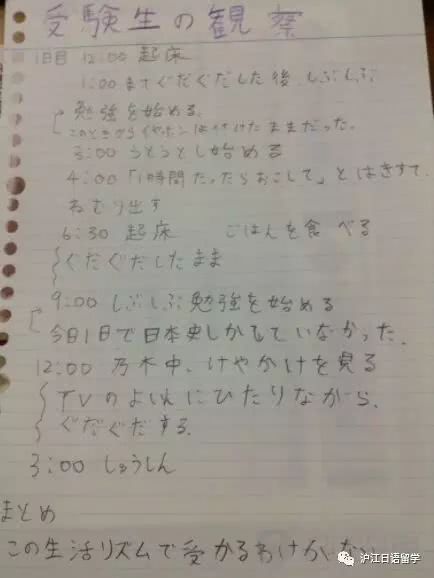 受験生の観察
1日目 12:00 起床
1:00まさぐだぐだした後、しぶしぶ
勉強を始める。
このときからイヤホンは付けたままだった。
3:00 うとうとし始める
4:00「1時間たったらおこして」とはきすて、
ねむり出す
6:30 起床 ごはんを食べる
ぐだぐだしたまま
9:00 しぶしぶ勉強を始める
今日1日で日本史しかしていなかった。
12:00 乃木中、けやかけを見る
TVのよいんにひたりながら、
ぐだぐだする。
3:00 しゅうしん
まとめ
この生活リズムで受かるわけがな
沪江日语留学